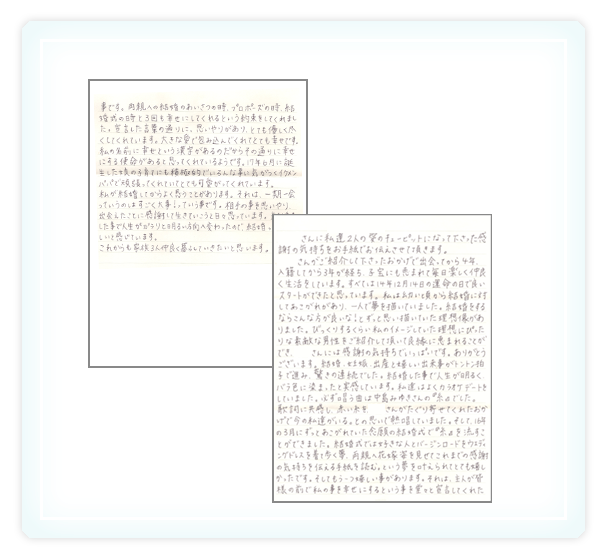 さんに私達2人の愛のキューピットになって下さった感
謝の気持ちをお手紙でお伝えさせて頂きます。
さんがご紹介して下さったおかげで出会ってから4年、
入籍してから3年が経ち、子宝にも恵まれて毎日楽しく仲良
く生活をしています。すべては14年12月14日の運命の日で良い
スタートができたと思っています。私は幼い頃から結婚に対
してあこがれがあり、一人で夢を描いていました。結婚をする
ならこんな方が良いな!とずっと思い描いていた理想像があ
りました。びっくりするくらい私のイメージしていた理想にぴった
りな素敵な男性をご紹介して頂いて良縁に恵まれることが
でき、 さんには感謝の気持ちでいっぱいです。ありがとう
ございます。結婚、妊娠、出産と嬉しい出来事がトントン拍
子で進み、驚きの連続でした。結婚した事で人生が明るく、
バラ色に染まったと実感しています。私達はよくカラオケデートを
していました。必ず唄う曲は中島みゆきさんの『糸』でした。
歌詞に共感し、赤い糸を さんがたぐり寄せてくれたおか
げで今の私達がいる。との思いで熱唱していました。そして、16年
の3月にずっとあこがれていた念願の結婚式で『糸』を流すこ
とができました。結婚式では大好きな人とバージンロードをウエディ
ングドレスを着て歩く夢、両親へ花嫁姿を見せてこれまでの感謝
の気持ちを伝える手紙を読む。という夢を叶えられてとても嬉し
かったです。そしてもう一つ嬉しい事があります。それは、主人が皆
様の前で私の事を幸せにするという事を堂々と宣言してくれた
事です。両親への結婚のあいさつの時、プロポーズの時、結
婚式の時と3回も幸せにしてくれるという約束をしてくれまし
た。宣言した言葉の通りに、思いやりがあり、とても優しく尽
くしてくれています。大きな愛で包み込んでくれてとても幸せです。
私の名前に幸せという漢字があるのだからその通りに幸せ
にする使命があると思ってくれているようです。17年6月に誕
生した娘の子育てにも積極的でいろんな事に気がつくイクメン
パパで頑張ってくれていてとても可愛がってくれています。
私が結婚してからよく思うことがあります。それは、一期一会
っていうのはすごく大事!っていう事です。相手の事を思いやり、
出会えたことに感謝して生きていこうと日々思っています。
した事で人生がガラリと明るい方向へ変わったので、結婚
しいと思っています。
これからも家族3人仲良く暮らしていきたいと思います。